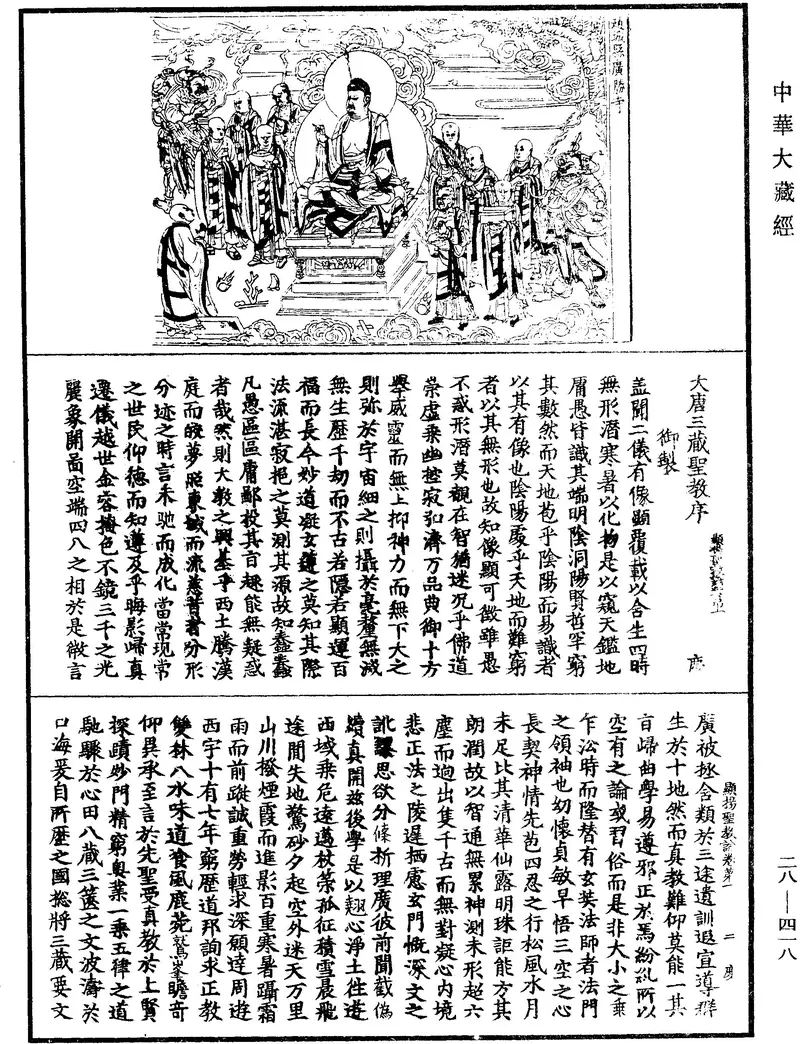 中華大藏經
趙城縣廣勝寺
大唐三藏聖教序
御製
蓋聞二儀有像顯覆載以含生四時
無形潛寒暑以化物是以窺天鑑地
庸愚皆識其端明陰洞陽賢哲罕窮
其數然而天地苞乎陰陽而易識者
以其有像也陰陽處乎天地而難窮
者以其無形也故知像顯可徵雖愚
不惑形潛莫覩在智猶迷況乎佛道
崇虛乘幽控寂弘濟万品典御十方
舉威靈而無上抑神力而無下大之
則弥於宇宙細之則攝於毫釐無滅
無生歷千劫而不古若隱若顯運百
福而長今妙道凝玄遵之莫知其際
法流湛寂挹之莫測其源故知蠢蠢
凡愚區區庸鄙投其旨趣能無疑惑
者哉然則大教之興基乎西土騰漢
庭而皎夢照東域而流慈昔者分形
分迹之時言未馳而成化當常現常
之世民仰德而知遵及乎晦影歸真
遷儀越世金容掩色不鏡三千之光
麗象開啚空端四八之相於是微言
顯揚聖教論卷第一
二
廣被拯含類於三途遺訓遐宣導群
生於十地然而真教難仰莫能一其
旨歸曲學易遵邪正於焉紛糺所以
空有之論或習俗而是非大小之乘
乍㳂時而隆替有玄奘法師者法門
之領袖也幼懷貞敏早悟三空之心
長契神情先苞四忍之行松風水月
未足比其清華仙露明珠詎能方其
朗潤故以智通無累神測未形超六
塵而迥出隻千古而無對凝心內境
悲正法之陵遲栖慮玄門慨深文之
訛謬思欲分條析理廣彼前聞截偽
續真開茲後學是以翹心淨土往遊
西域乘危遠邁杖策孤征積雪晨飛
途間失地驚砂夕起空外迷天万里
山川撥煙霞而進影百重寒暑躡霜
雨而前蹤誠重勞輕求深願達周遊
西宇十有七年窮歷道邦詢求正教
雙林八水味道飡風鹿菀鷲峯瞻奇
仰異承至言於先聖受真教於上賢
探賾妙門精窮奧業一乘五律之道
馳驟於心田八藏三篋之文波濤於
口海爰自所歷之國揔將三藏要文
二八—四一八